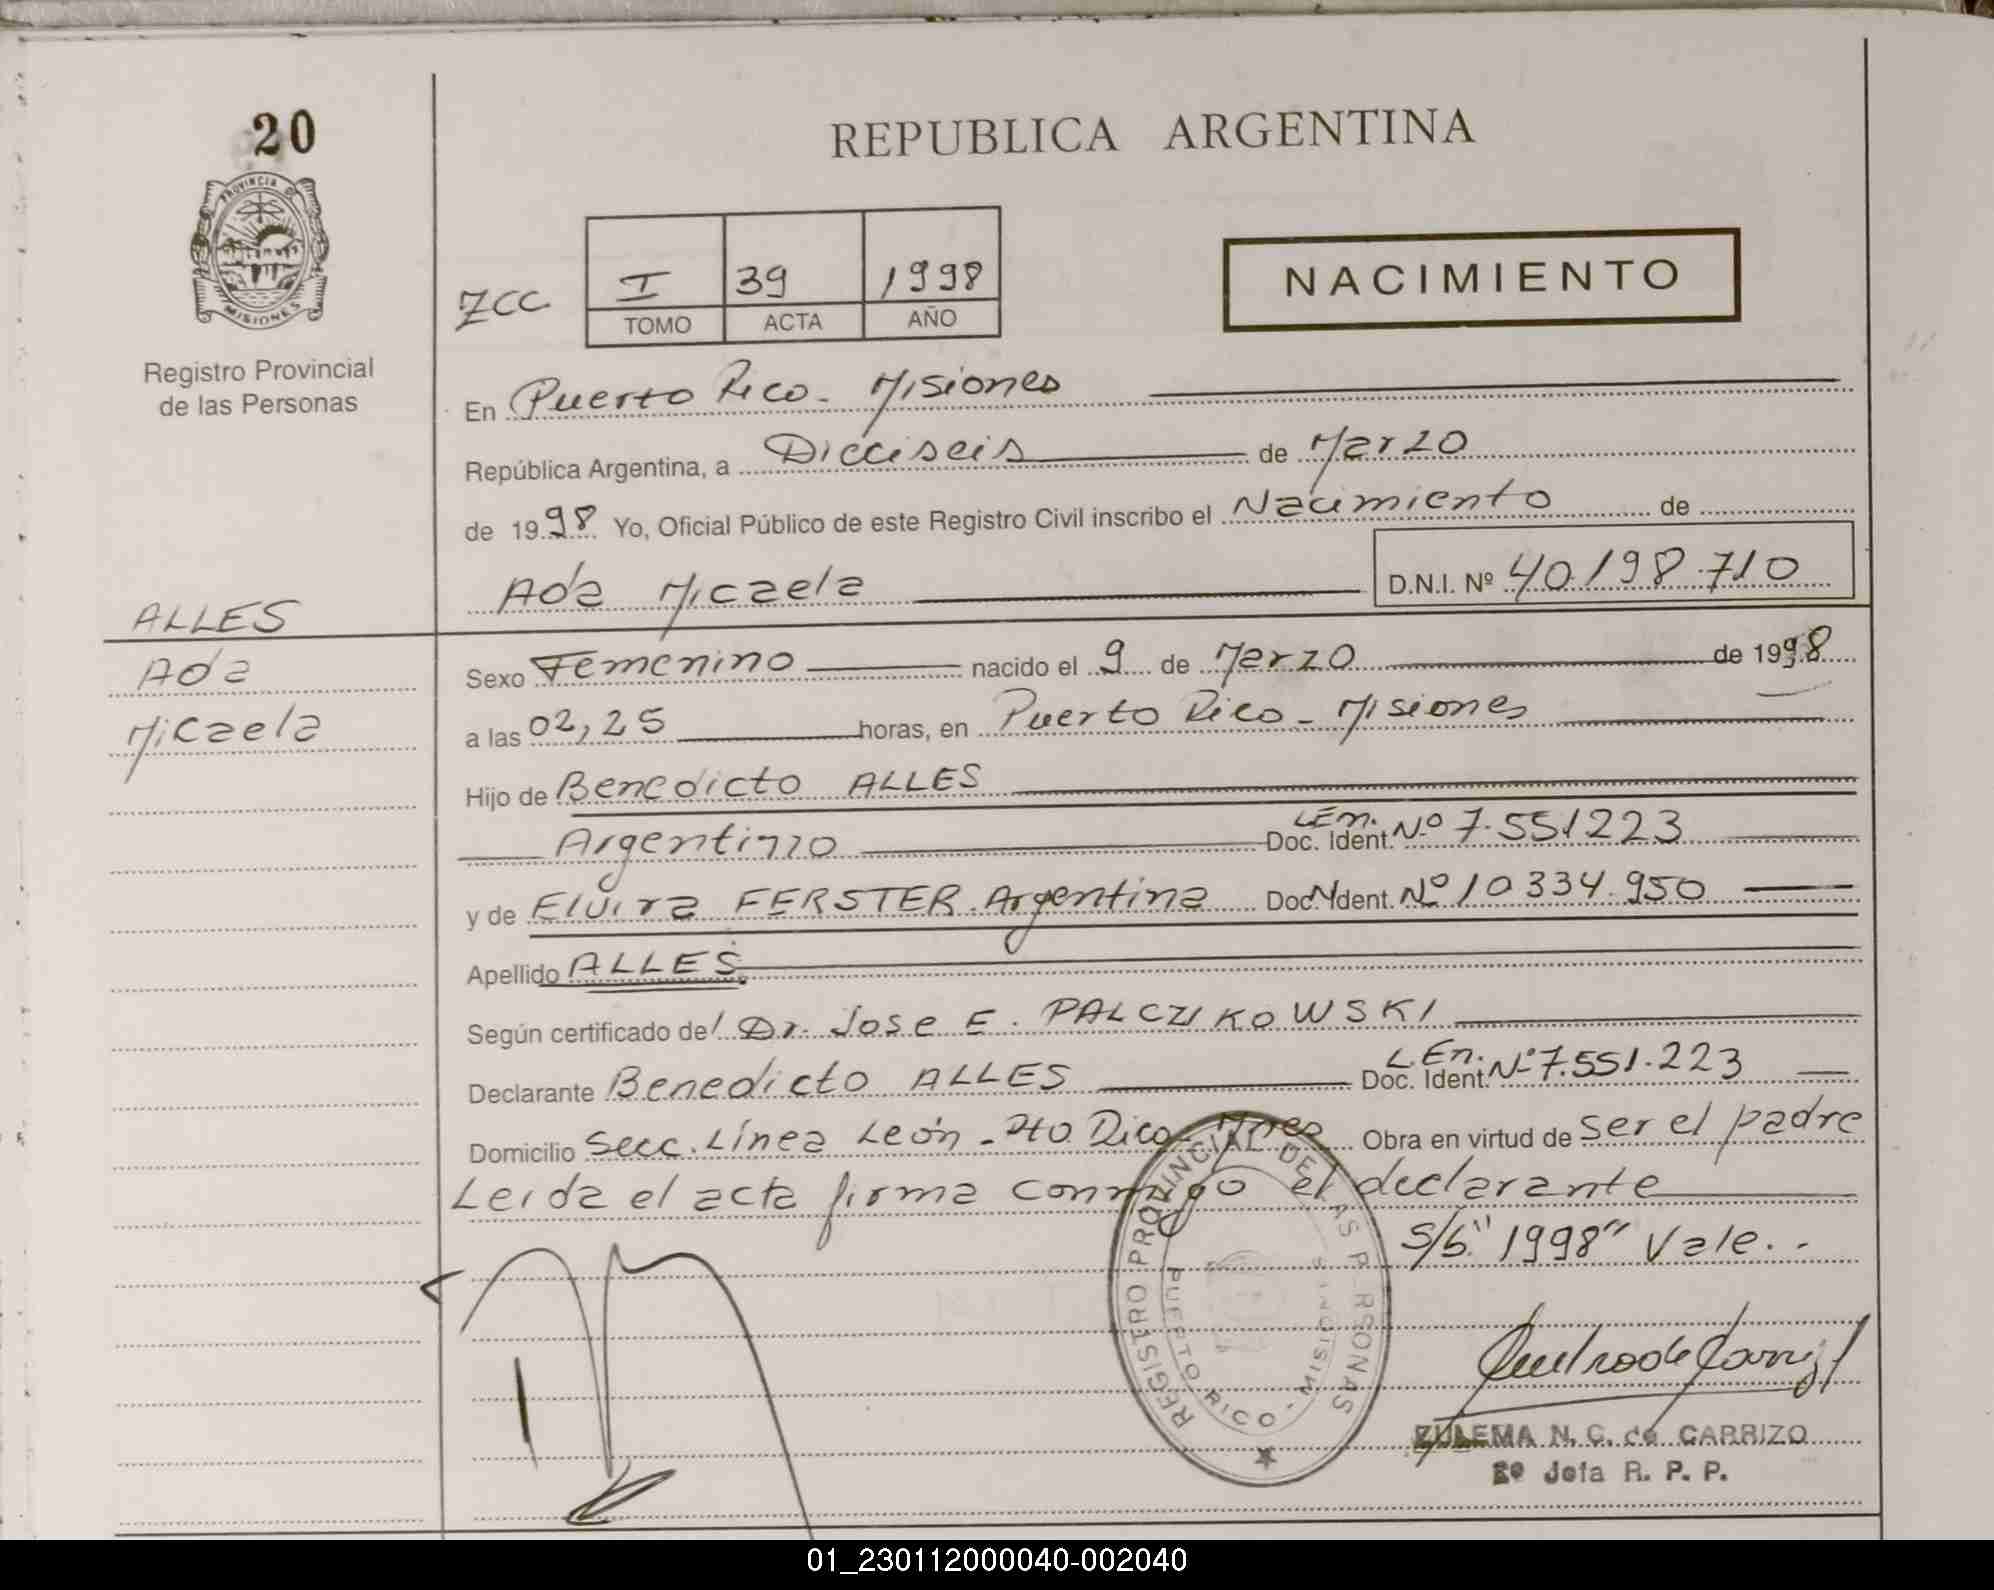 20
REPUBLICA ARGENTINA
PROVINCIA DE
MISIONES
Registro Provincial
de las Personas
ZCC
I 39 1998
TOMO ACTA AÑO
NACIMIENTO
En Puerto Rico - Misiones
República Argentina, a Dieciseis de Marzo
de 1998 Yo, Oficial Público de este Registro Civil inscribo el Nacimiento de
Ada Micaela D.N.I. Nº 40.198.710
ALLES
Ada
Micaela
Sexo Femenino nacido el 9 de Marzo de 1998
a las 02,25 horas, en Puerto Rico - Misiones
Hijo de Benedicto ALLES
Argentino L.En. Doc. Ident. Nº 7.551223
y de Elvira FERSTER. Argentina Doc. Ident. Nº 10334.950
Apellido ALLES
Según certificado del Dr. Jose E. PALCZIKOWSKI
Declarante Benedicto ALLES L.En. Doc. Ident. Nº 7.551.223
Domicilio Secc. Línea León - Pto. Rico - Mnes Obra en virtud de ser el padre
Leida el acta firma conmigo el declarante
S/b "1998" Vale.-
REGISTRO PROVINCIAL DE LAS PERSONAS
PUERTO RICO - MISIONES
ZULEMA N. C. de CARRIZO
2º Jefa R. P. P.
01_230112000040-002040